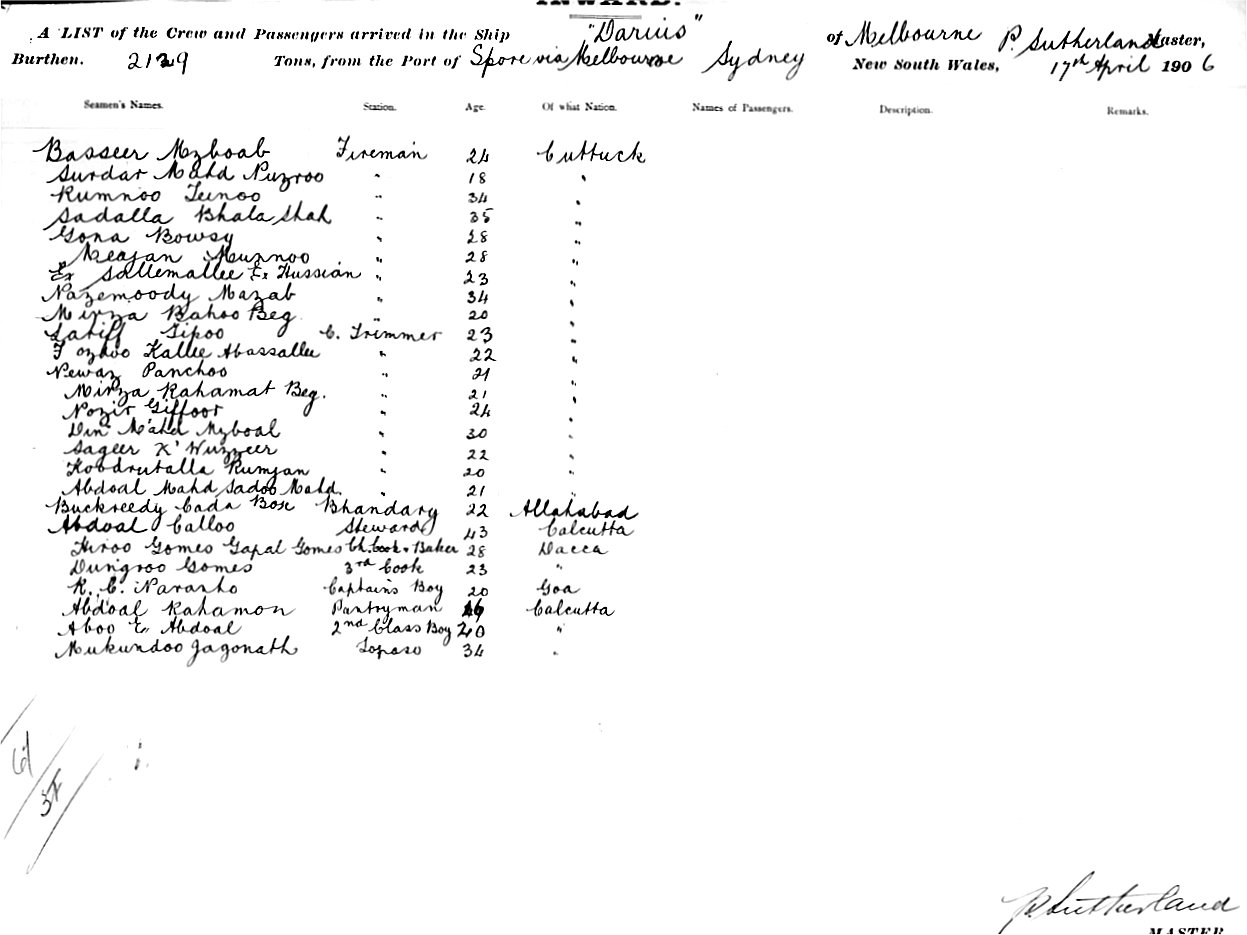 INWARD.
A LIST of the Crew and Passengers arrived in the Ship "Darius" of Melbourne P. Sutherland Master,
Burthen. 2129 Tons, from the Port of Spore via Melbourne Sydney New South Wales, 17th April 1906
Seamen's Names. Station. Age. Of what Nation. Names of Passengers. Description. Remarks.
Basseer Mzboab Fireman 24 Cuttuck
Surdar Mahd Puzroo " 18 "
Rumnoo Teenoo " 34 "
Sadalla Bhala Shah " 35 "
Gona Bowsy " 28 "
Meajan Munnoo " 28 "
Ex Sallemallee Ex Hussian " 23 "
Nazemoody Mazab " 34 "
Mirza Bahoo Beg " 20 "
Lariff Tipoo C. Trimmer 23 "
Kallee Abassallee " 22 "
Newaz Panchoo " 21 "
Mirza Rahamat Beg. " 21 "
Nozir Giffoor " 24 "
Din Mahd Mzboal " 30 "
Sageer K' Wuzzeer " 22 "
Koodrutalla Rumjan " 20 "
Abdoal Mahd Sadoo Mahd. " 21 "
Buckreedy Cada Box Bhandary 22 Allahabad
Abdoal Calloo Steward 43 Calcutta
Hiroo Gomes Gapal Gomes Ch. Cook & Baker 28 Dacca
Dungroo Gomes 3rd Cook 23 "
R. C. Naranho Captains Boy 20 Goa
Abdoal Rahamon Pantryman Calcutta
Aboo Ex Abdoal 2nd Class Boy 20 "
Mukundoo Jagonath Topaso 34 "
61
37
P. Sutherland
MASTER